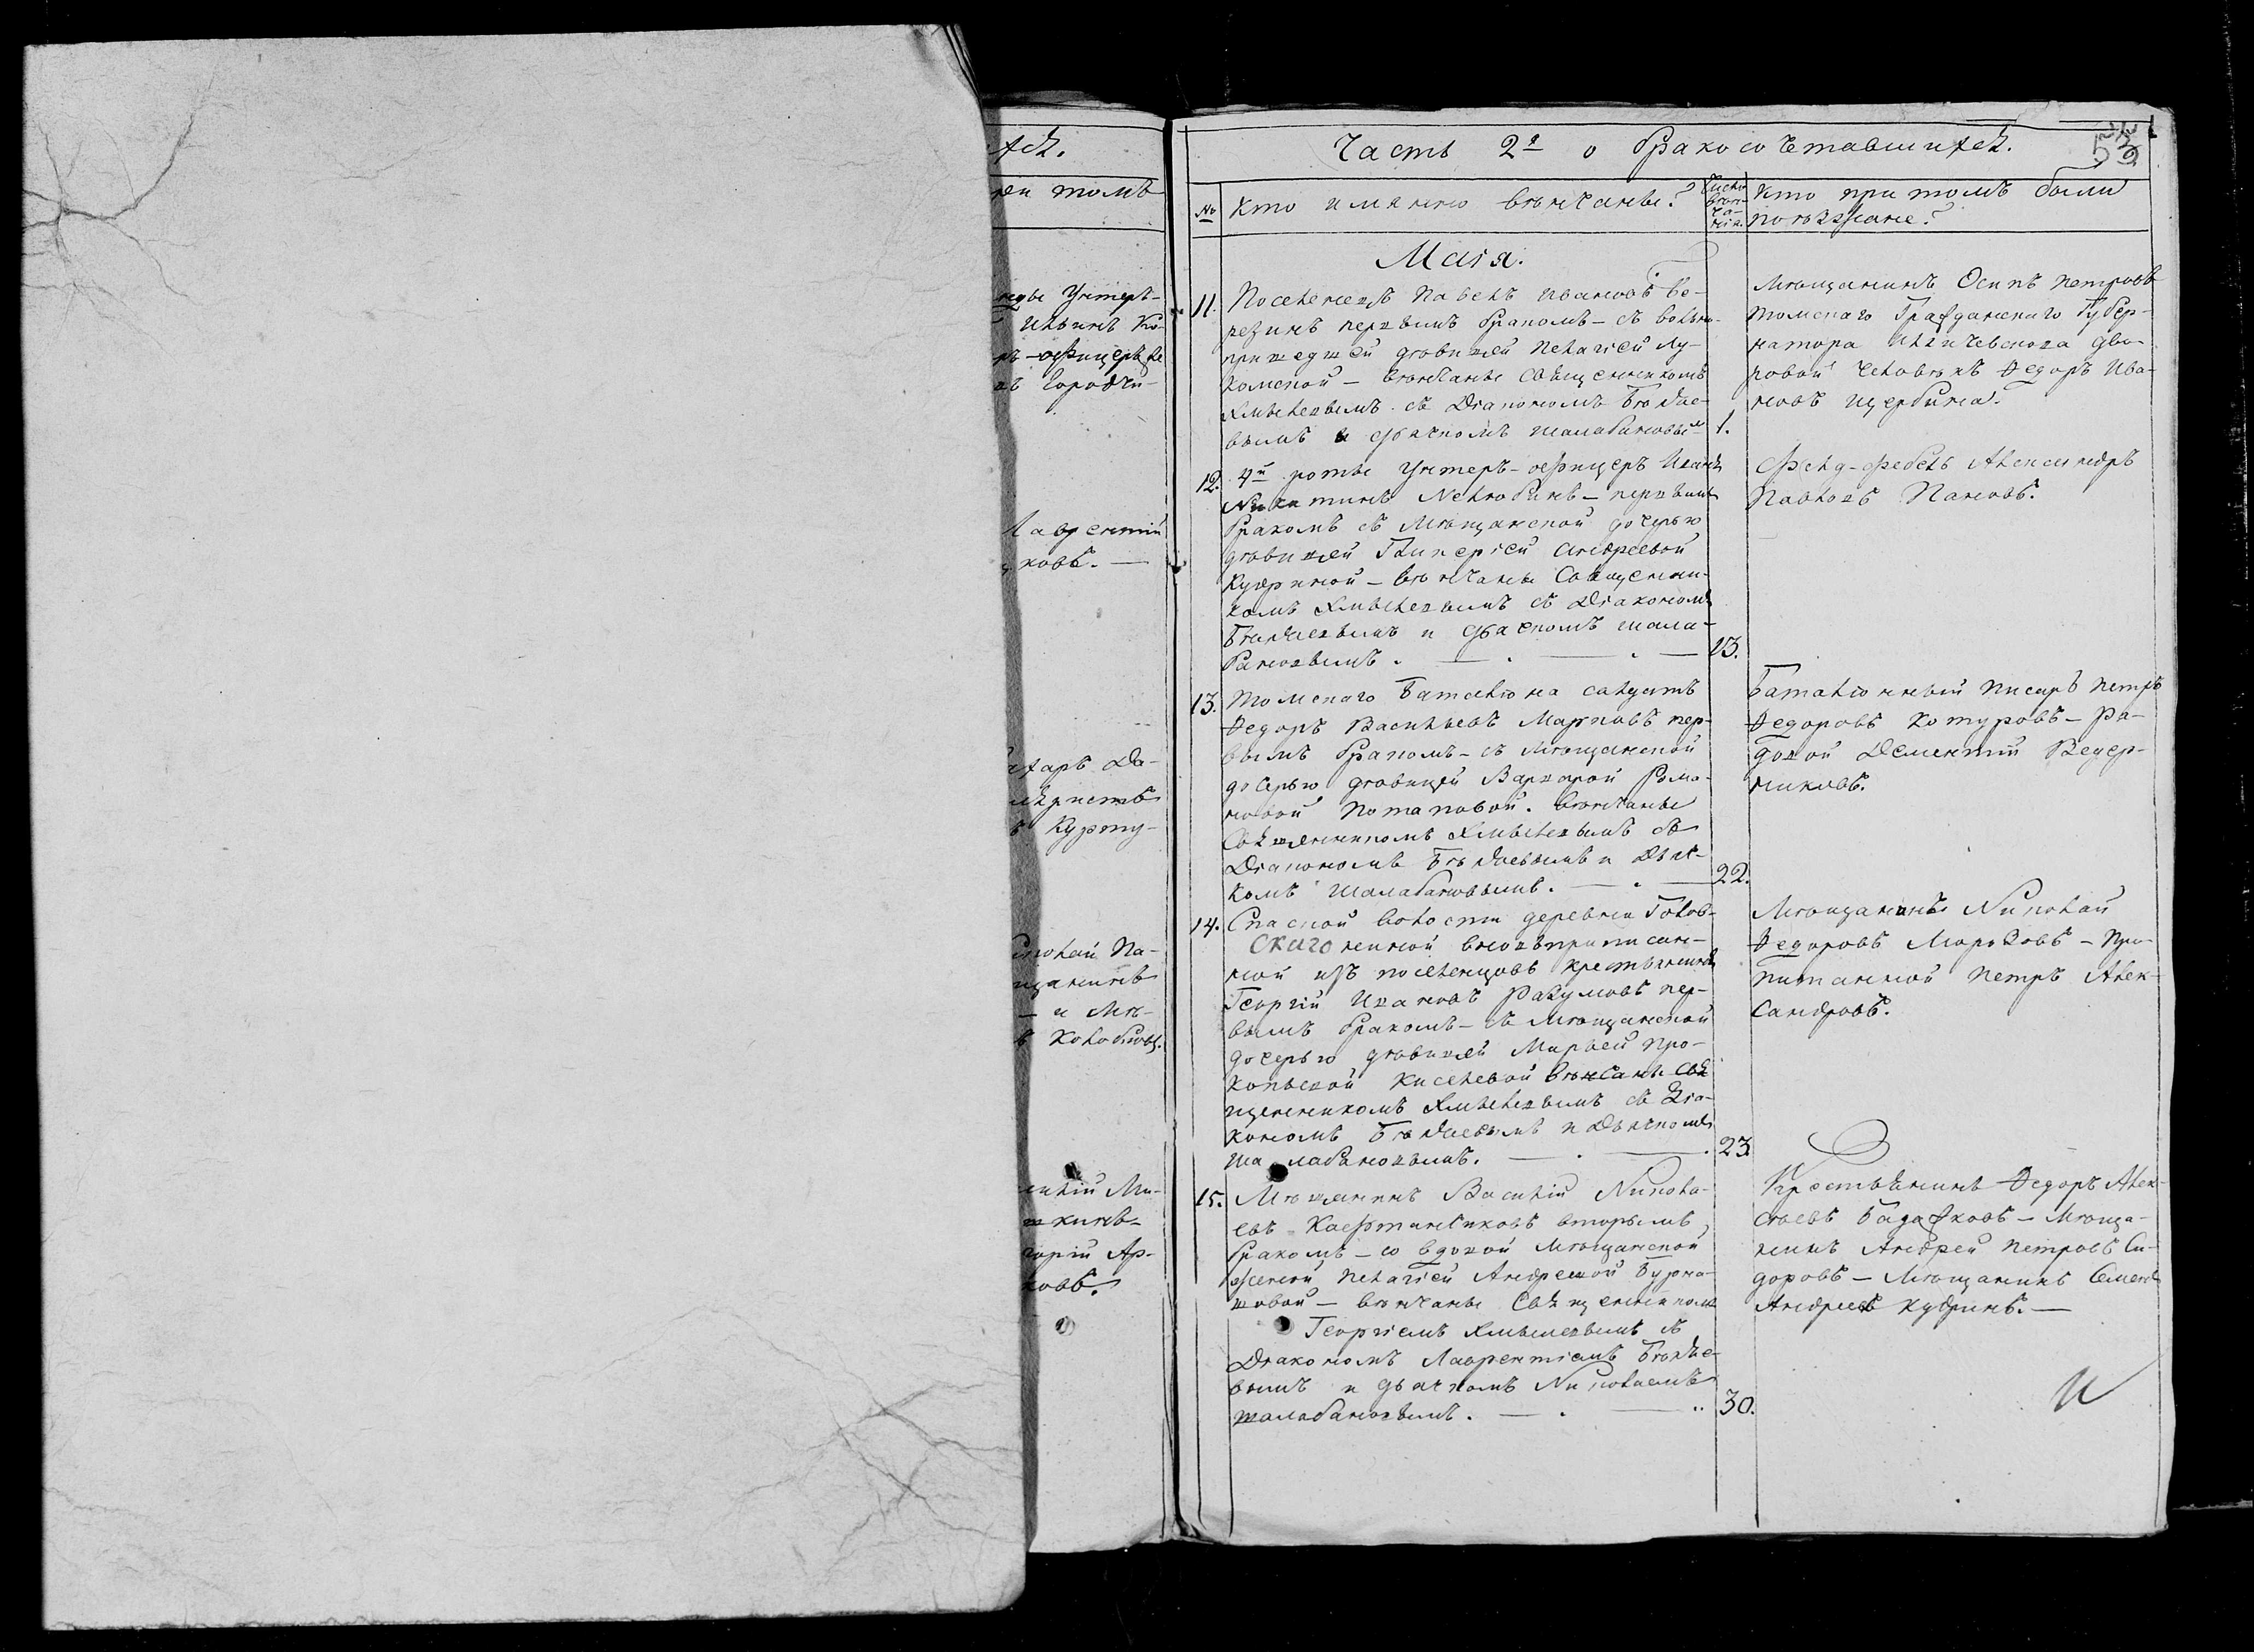 хсѧ.
ри томъ
Унтеръ-
Ильинъ Ко-
ръ-офицеръ
въ Городчи-
Лаврентій
ковъ. —
Да-
Курту-
колай Па-
щанинъ
— и Мѣ-
силій Ми-
горій Ар-
ковъ.
Часть 2я о бракосочетавшихся.
№
Кто имянно вѣнчаны?
Число вѣнчанія.
Кто при томъ были
поѣзжане?
Маія.
11. Поселенецъ Павелъ Ивановъ Бе-
резинъ первымъ бракомъ — съ вольно-
пришедшей дѣвицей Пелагіей Лу-
комской — вѣнчаны Священникомъ
Хмылевымъ съ Діакономъ Бѣляе-
вымъ и дьячкомъ Шалабановым 1.
Мѣщанинъ Осипъ Петровъ
Томскаго Гражданскаго Губер-
натора Илличевскаго дво-
ровой человѣкъ Федоръ Ива-
новъ Щербина.
12. 4й роты Унтеръ-офицеръ Иванъ
Никитинъ Нелюбинъ — первымъ
бракомъ съ Мѣщанской дочерью
дѣвицей Гликеріей Андреевой
Кудриной — вѣнчаны Священни-
комъ Хмылевымъ съ Діакономъ
Бѣляевымъ и дьячкомъ Шала-
бановымъ. 13.
Фелд-фебель Александръ
Павловъ Пановъ.
13. Томскаго Баталіона салдатъ
Федоръ Васильевъ Марковъ пер-
вымъ бракомъ — съ Мѣщанской
дочерью дѣвицей Варварой Рома-
новой Потаповой. Вѣнчаны
Священникомъ Хмылевымъ съ
Діакономъ Бѣляевымъ и Дьяч-
комъ Шалабановымъ. 22.
Баталіонный писарь Петръ
Федоровъ Котуровъ — Ря-
довой Дементій Ведер-
никовъ.
14. Спаской волости деревни Голов-
ниной вновьприписан-
ной изъ поселенцовъ крестьянинъ
Георгій Ивановъ Разумовъ пер-
вымъ бракомъ — съ Мѣщанской
дочерью дѣвицей Марьей Про-
копьевой Киселевой вѣнчаны Свя
щенникомъ Хмылевымъ съ Діа-
кономъ Бѣляевымъ и Дьячкомъ
Шалабановымъ. 23.
Мѣщанинъ Николай
Федоровъ Морозовъ — Про-
питанной Петръ Алек-
сандровъ.
15. Мѣщанинъ Василій Никола-
евъ Кафтанчиковъ вторымъ
бракомъ — со вдовой Мѣщанской
женой Пелагіей Андреевой Бурма-
шовой — вѣнчаны Священникомъ
Георгіемъ Хмылевымъ съ
Діакономъ Лаврентіемъ Бѣляе-
вымъ и дьячкомъ Николаемъ
Шалабановымъ. 30.
Крестьянинъ Федоръ Алек-
сѣевъ Бадажковъ — Мѣща-
нинъ Андрей Петровъ Си-
доровъ — Мѣщанинъ Семенъ
Андреевъ Кудринъ. —